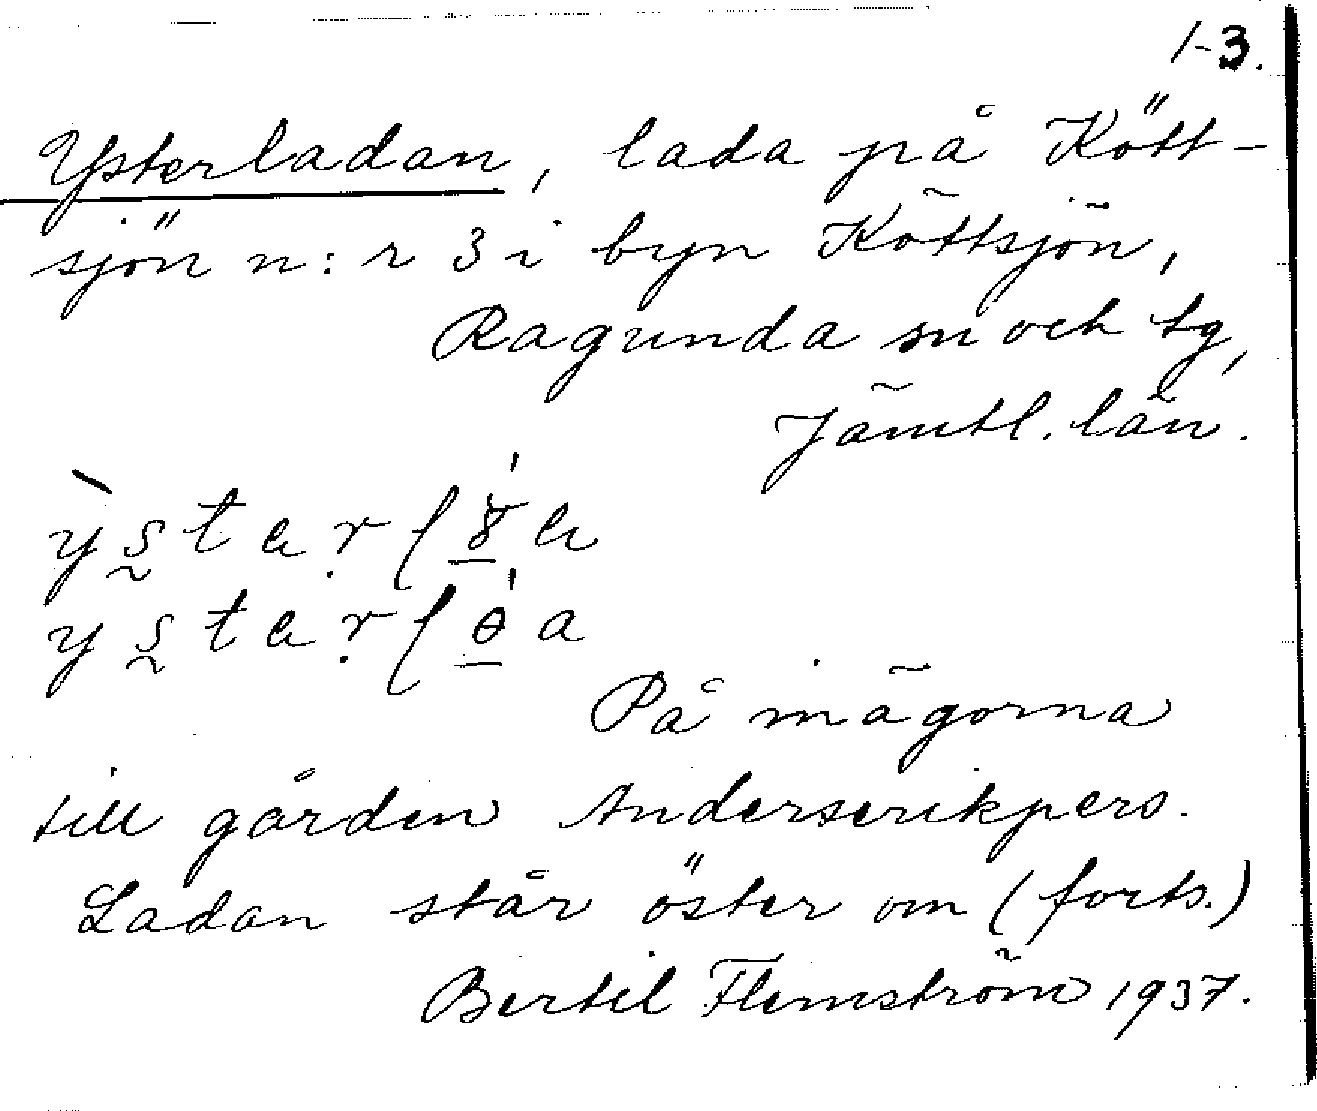 1-3.
Ysterladan, lada på Kött-
sjön n:r 3 i byn Köttsjön,
Ragunda sn och tg,
Jämtl. län.
På mägorna
till gården Anderserikpers.
Ladan står öster om (forts.)
Bertil Flemström 1937.